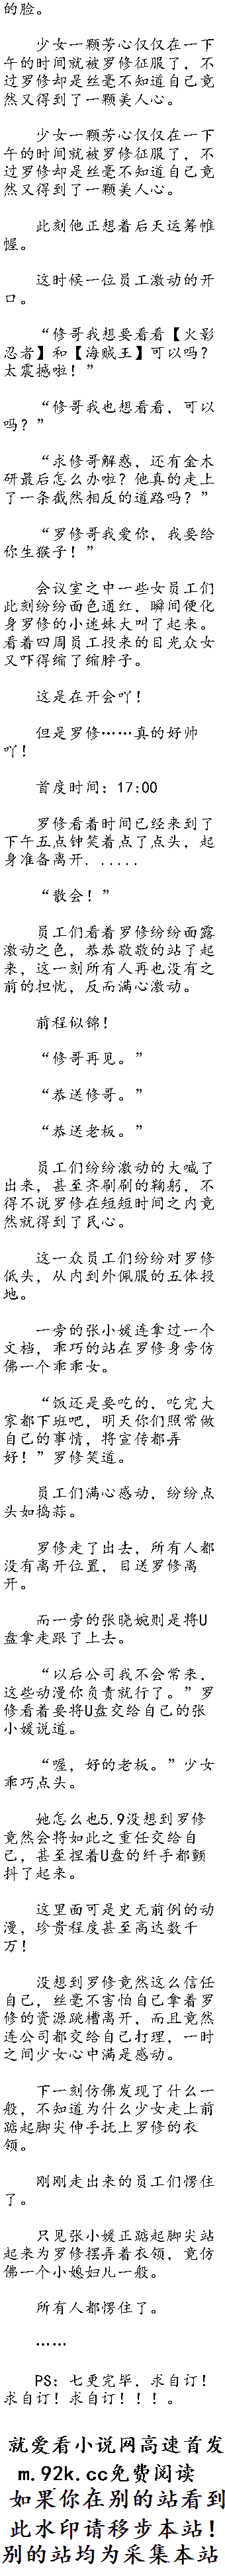 的脸。
少女一颗芳心仅仅在一下
午的时间就被罗修征服了，不
过罗修却是丝毫不知道自己竟
然又得到了一颗美人心。
少女一颗芳心仅仅在一下
午的时间就被罗修征服了，不
过罗修却是丝毫不知道自己竟
然又得到了一颗美人心。
此刻他正想着后天运筹帷
幄。
这时候一位员工激动的开
口。
“修哥我想要看看【火影
忍者】和【海贼王】可以吗？
太震撼啦！”
“修哥我也想看看，可以
吗？”
“求修哥解惑，还有金木
研最后怎么办啦？他真的走上
了一条截然相反的道路吗？”
“罗修哥我爱你，我要给
你生猴子！”
会议室之中一些女员工们
此刻纷纷面色通红，瞬间便化
身罗修的小迷妹大叫了起来。
看着四周员工投来的目光众女
又吓得缩了缩脖子。
这是在开会吖！
但是罗修……真的好帅
吖！
首度时间：17:00
罗修看着时间已经来到了
下午五点钟笑着点了点头，起
身准备离开. .....
“散会！”
员工们看着罗修纷纷面露
激动之色，恭恭敬敬的站了起
来，这一刻所有人再也没有之
前的担忧，反而满心激动。
前程似锦！
“修哥再见。”
“恭送修哥。”
“恭送老板。”
员工们纷纷激动的大喊了
出来，甚至齐刷刷的鞠躬，不
得不说罗修在短短时间之内竟
然就得到了民心。
这一众员工们纷纷对罗修
低头，从内到外佩服的五体投
地。
一旁的张小媛连拿过一个
文档，乖巧的站在罗修身旁仿
佛一个乖乖女。
“饭还是要吃的，吃完大
家都下班吧，明天你们照常做
自己的事情，将宣传都弄
好！”罗修笑道。
员工们满心感动，纷纷点
头如捣蒜。
罗修走了出去，所有人都
没有离开位置，目送罗修离
开。
而一旁的张晓婉则是将U
盘拿走跟了上去。
“以后公司我不会常来，
这些动漫你负责就行了。”罗
修看着要将U盘交给自己的张
小媛说道。
“喔，好的老板。”少女
乖巧点头。
她怎么也5.9没想到罗修
竟然会将如此之重任交给自
己，甚至捏着U盘的纤手都颤
抖了起来。
这里面可是史无前例的动
漫，珍贵程度甚至高达数千
万！
没想到罗修竟然这么信任
自己，丝毫不害怕自己拿着罗
修的资源跳槽离开，而且竟然
连公司都交给自己打理，一时
之间少女心中满是感动。
下一刻仿佛发现了什么一
般，不知道为什么少女走上前
踮起脚尖伸手抚上罗修的衣
领。
刚刚走出来的员工们愣住
了。
只见张小媛正踮起脚尖站
起来为罗修摆弄着衣领，竟仿
佛一个小媳妇儿一般。
所有人都愣住了。
……
PS：七更完毕，求自订！
求自订！求自订！！！。
就爱看小说网高速首发
m.92k.cc免费阅读
如果你在别的站看到
此水印请移步本站！
别的站均为采集本站